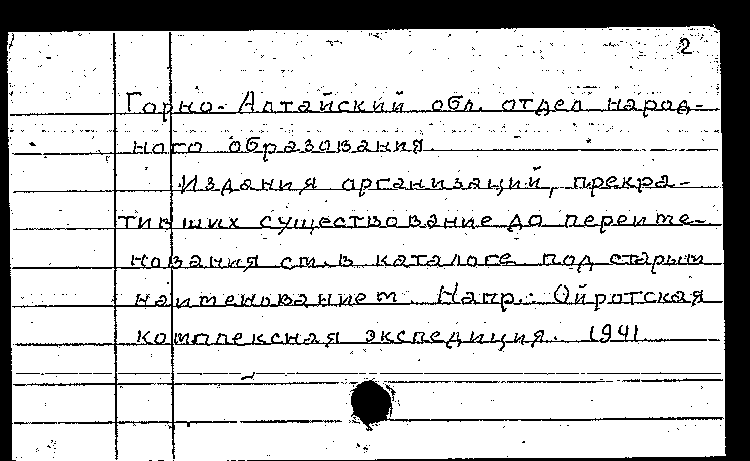 2
Горно-Алтайский обл. отдел народ-
ного образования.
Издания организаций, прекра-
тивших существование до переиме-
нования см. в каталоге под старым
наименованием. Напр.: Ойротская
комплексная экспедиция. 1941